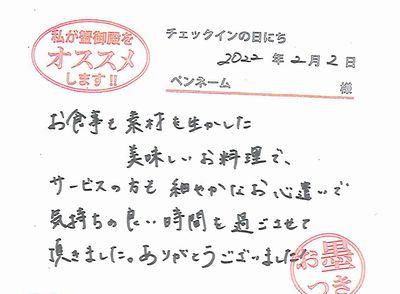 私が蟹御殿を
オススメ
します!!
チェックインの日にち
2022年2月2日
ペンネーム 様
お食事も素材も生かした
美味しいお料理で、
サービスの方も細やかなお心遣いで
気持ちの良い時間も過ごさせて
頂きました。ありがとうございました!
お墨
つき